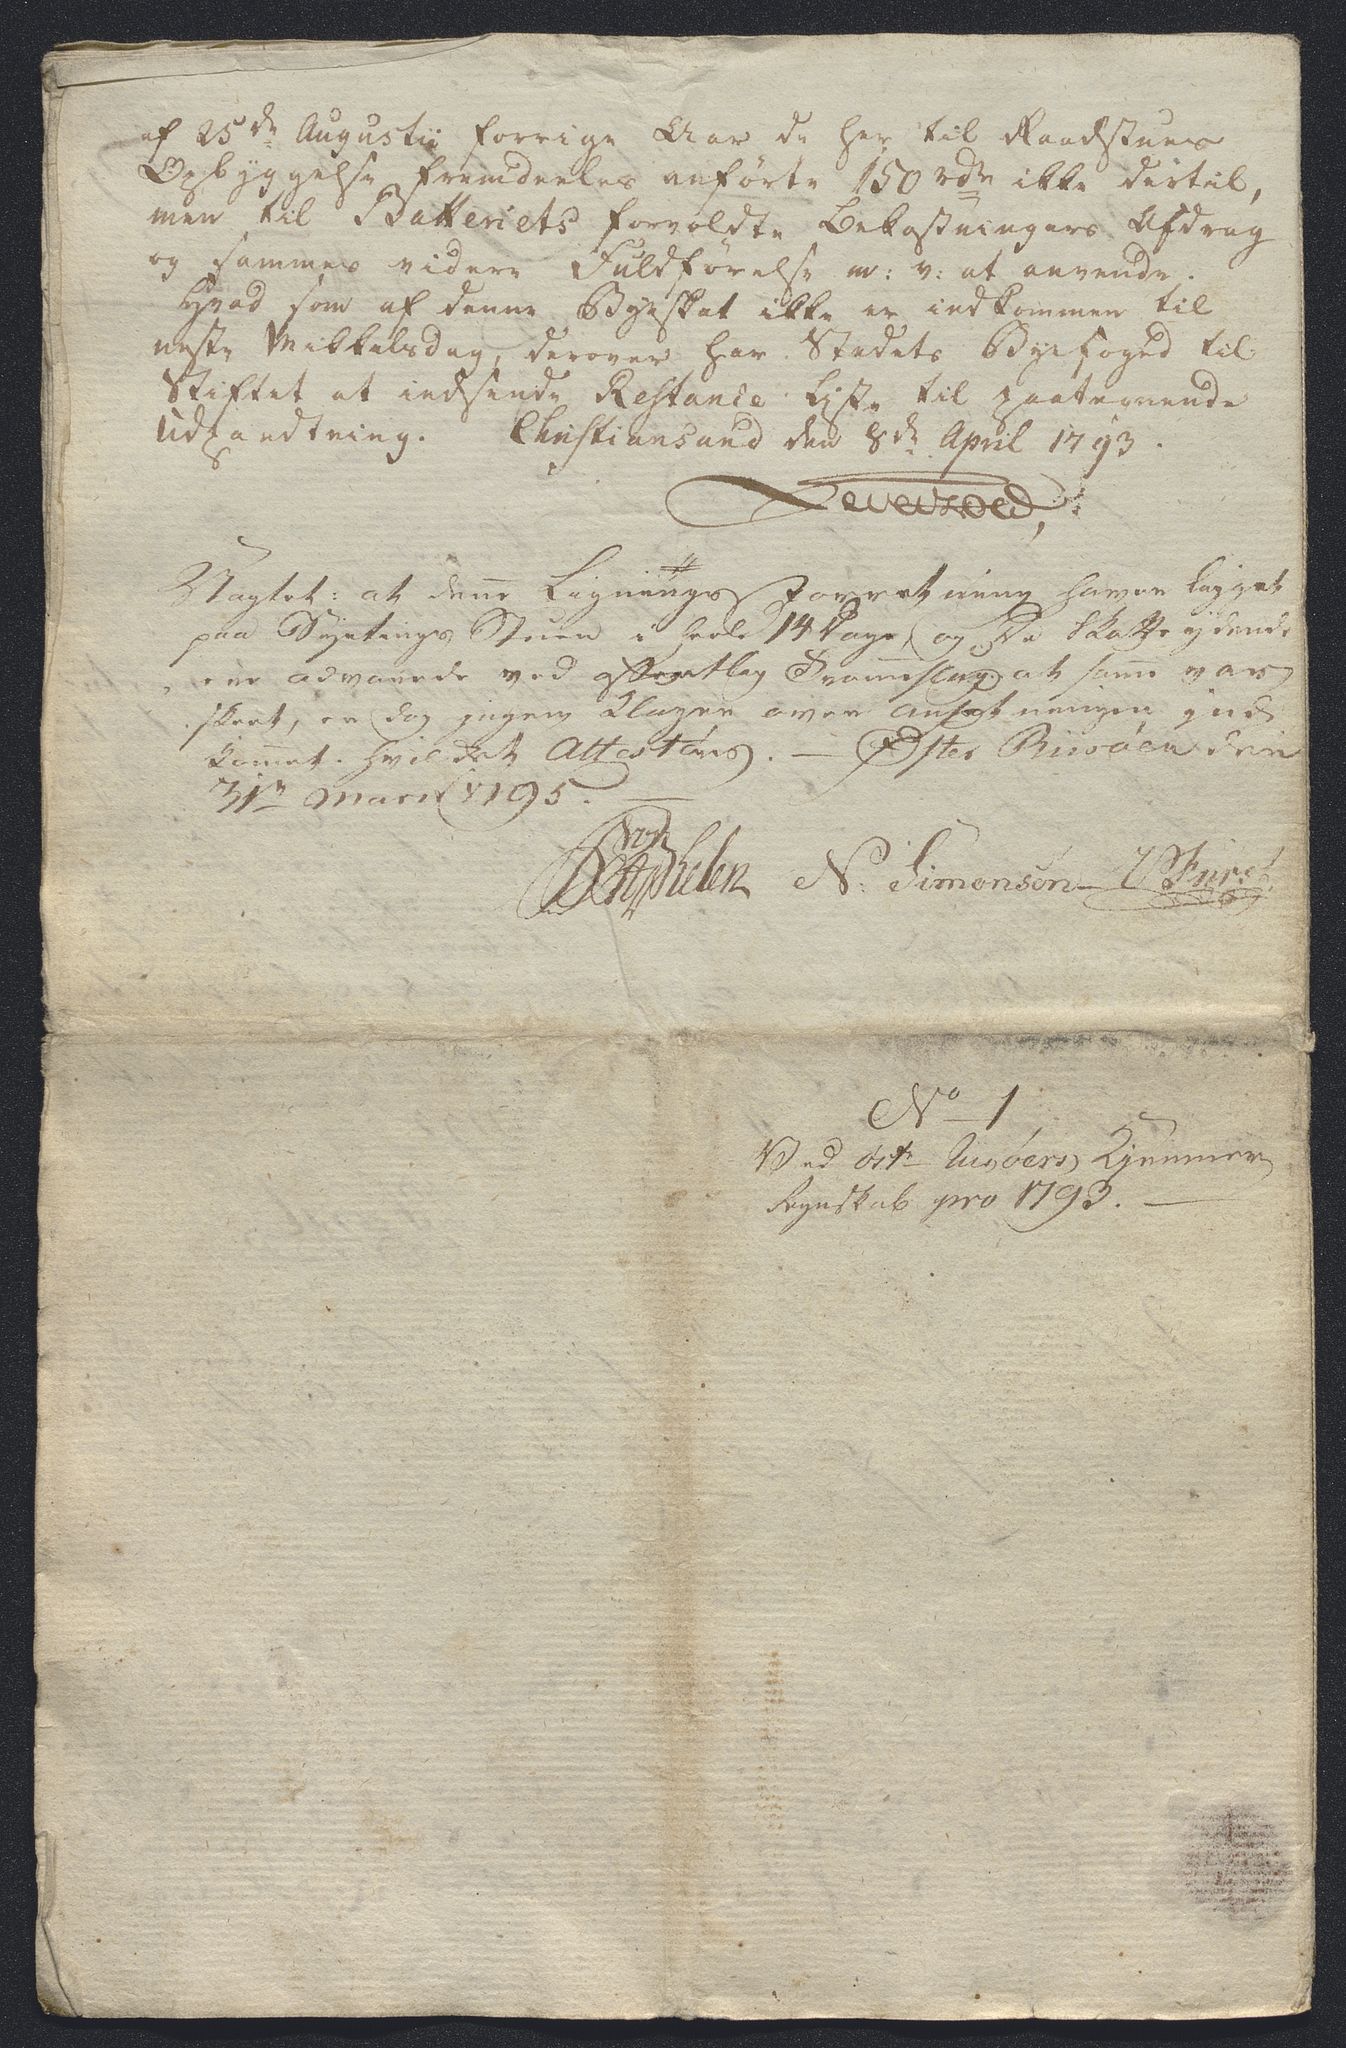 af 25de Augustii forrige Aar de her til Raadstuens
Opbyggelse fremdeeles anförte 150 rdr ikke dertil,
men til Batteriets forvoldte Bekostningers Afdrag
og sammes videre Fuldförelse m: v: at anvende.
Hvad som af denne Byeskat ikke er indkommen til
neste Mikkelsdag, derover har Stedets Byefoged til
Stiftet at indsende Restance Liste til paategnende
Udpandtning. Christiansand den 8de April 1793.
Levetzoed,
at denne Lignings Forretning haver ligget
paa Byetings Stuen i heele 14 Dage, og De Skatte ydende
ere advarede ved offentlig at samme var
skeet, er dog ingen Klager over ansetningen ind
kommet. hvilcket Attesteres. — Öster Riisöer den
31te Martii 1795. —
von N: Simonsön
No 1
Ved öst. Riisöers Kjemmer
Regnskab pro 1793. —